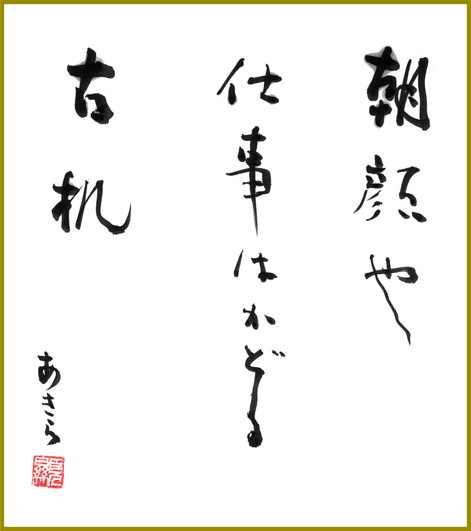 朝顔や
仕事はかどる
古机
あきら